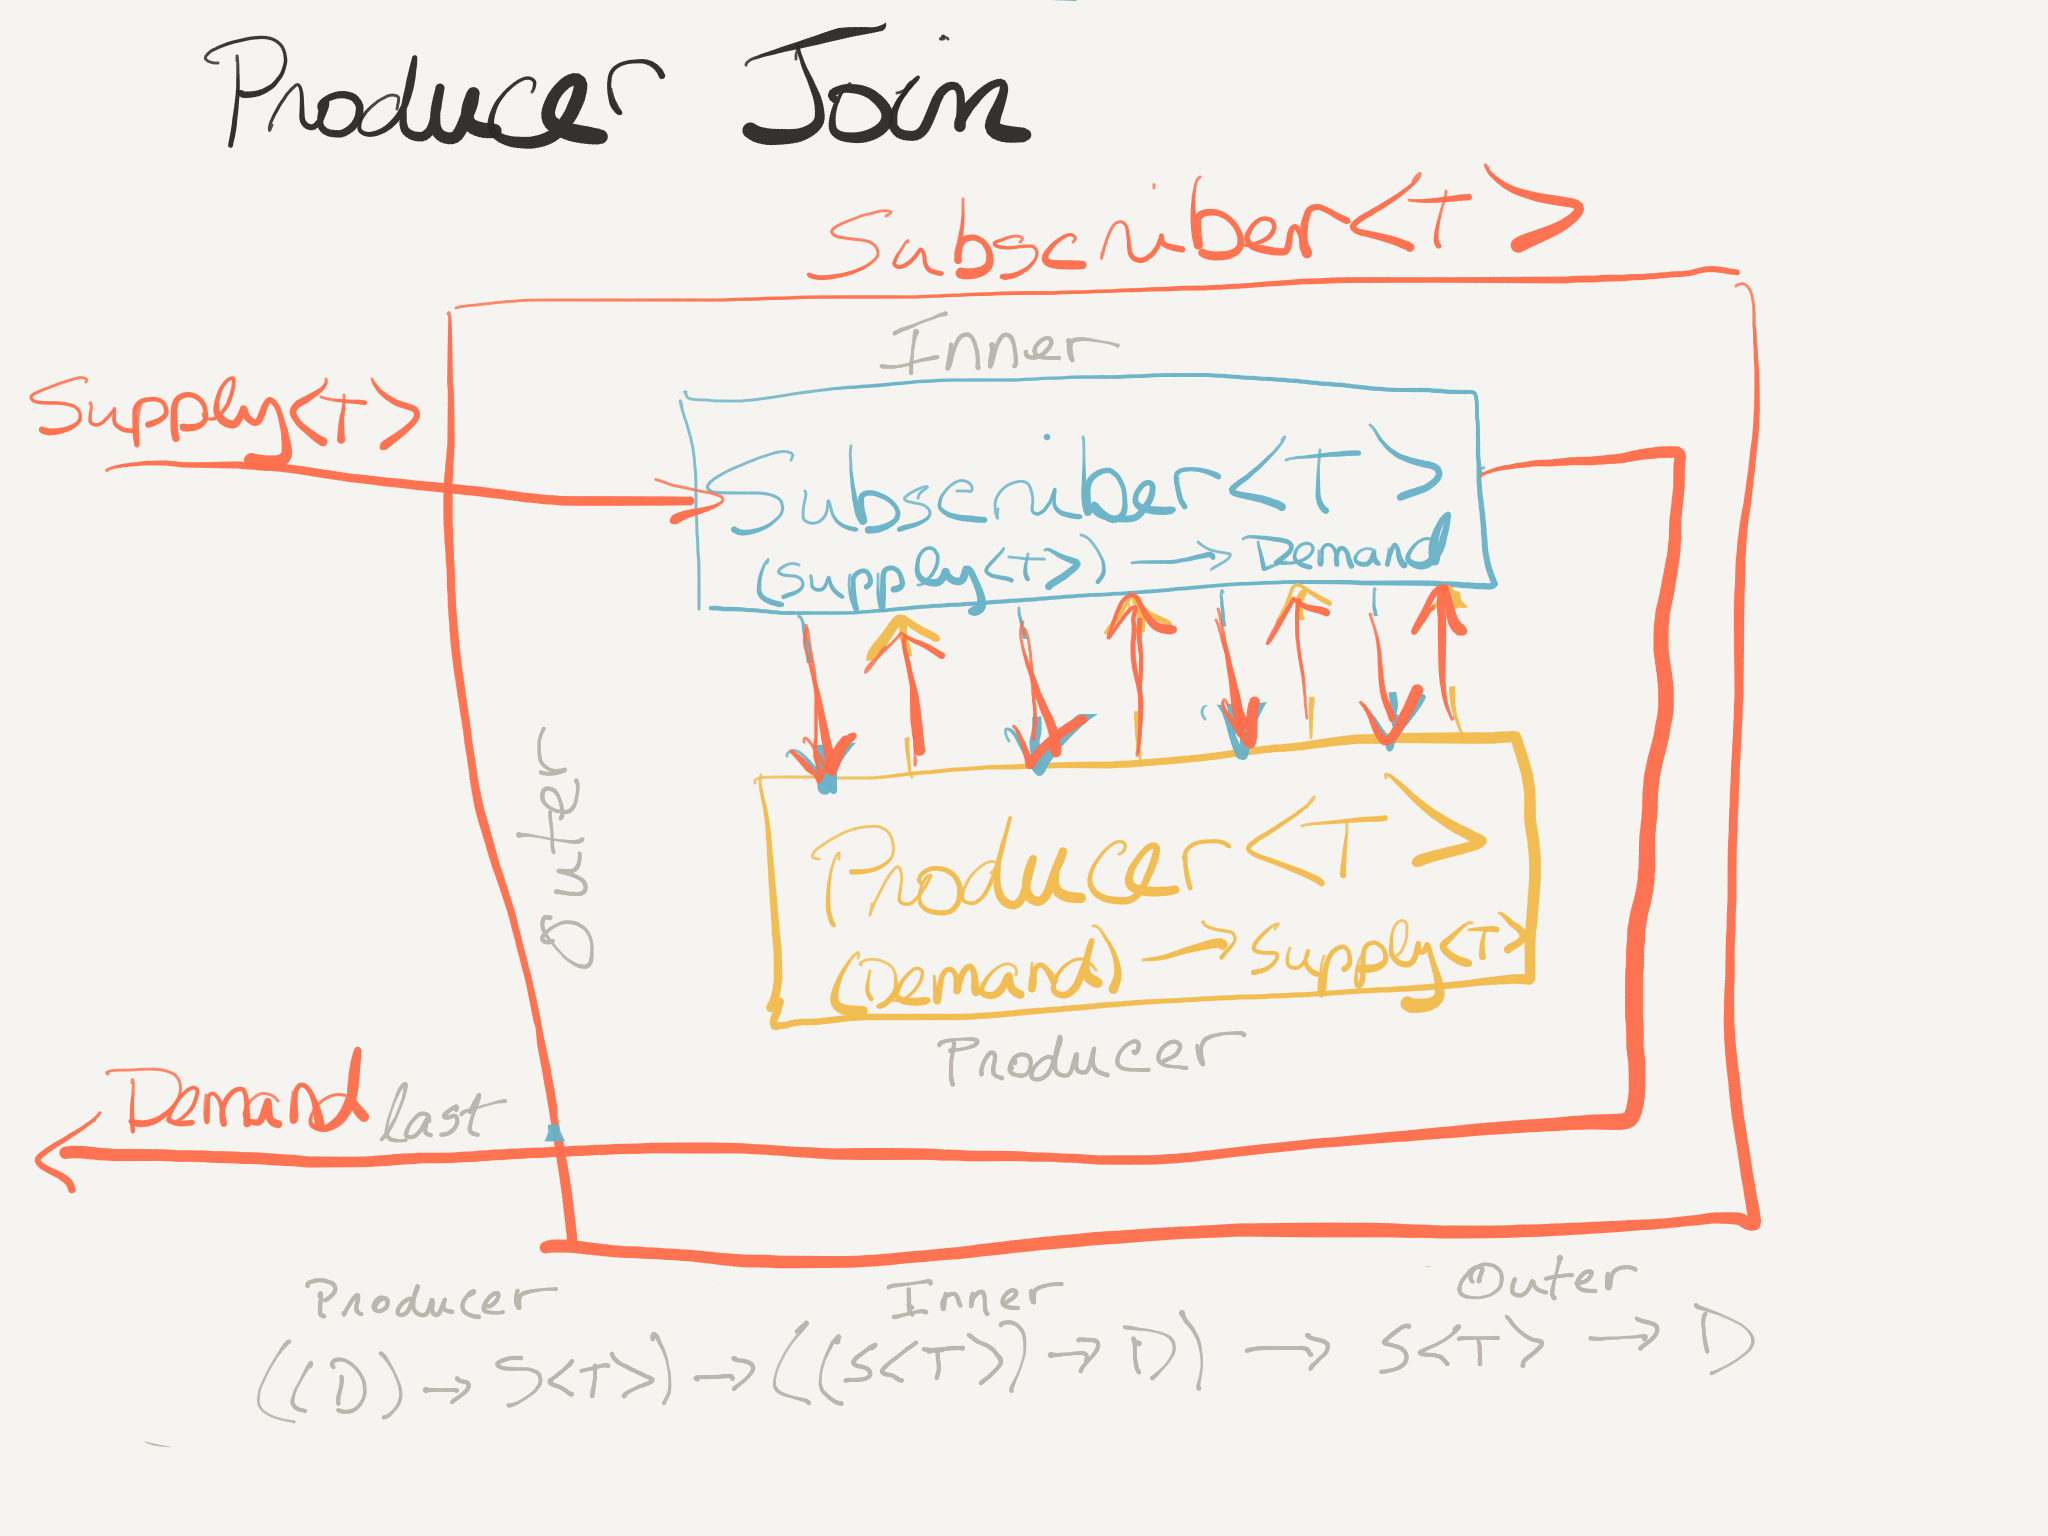 Producer Join
Subscriber<T>
Inner
Supply<T>
Subscriber<T>
(Supply<T>) → Demand
Outer
Producer<T>
(Demand) → Supply<T>
Producer
Demand last
Producer Inner Outer
((D) → S<T>) → ((S<T>) → D) → S<T> → D